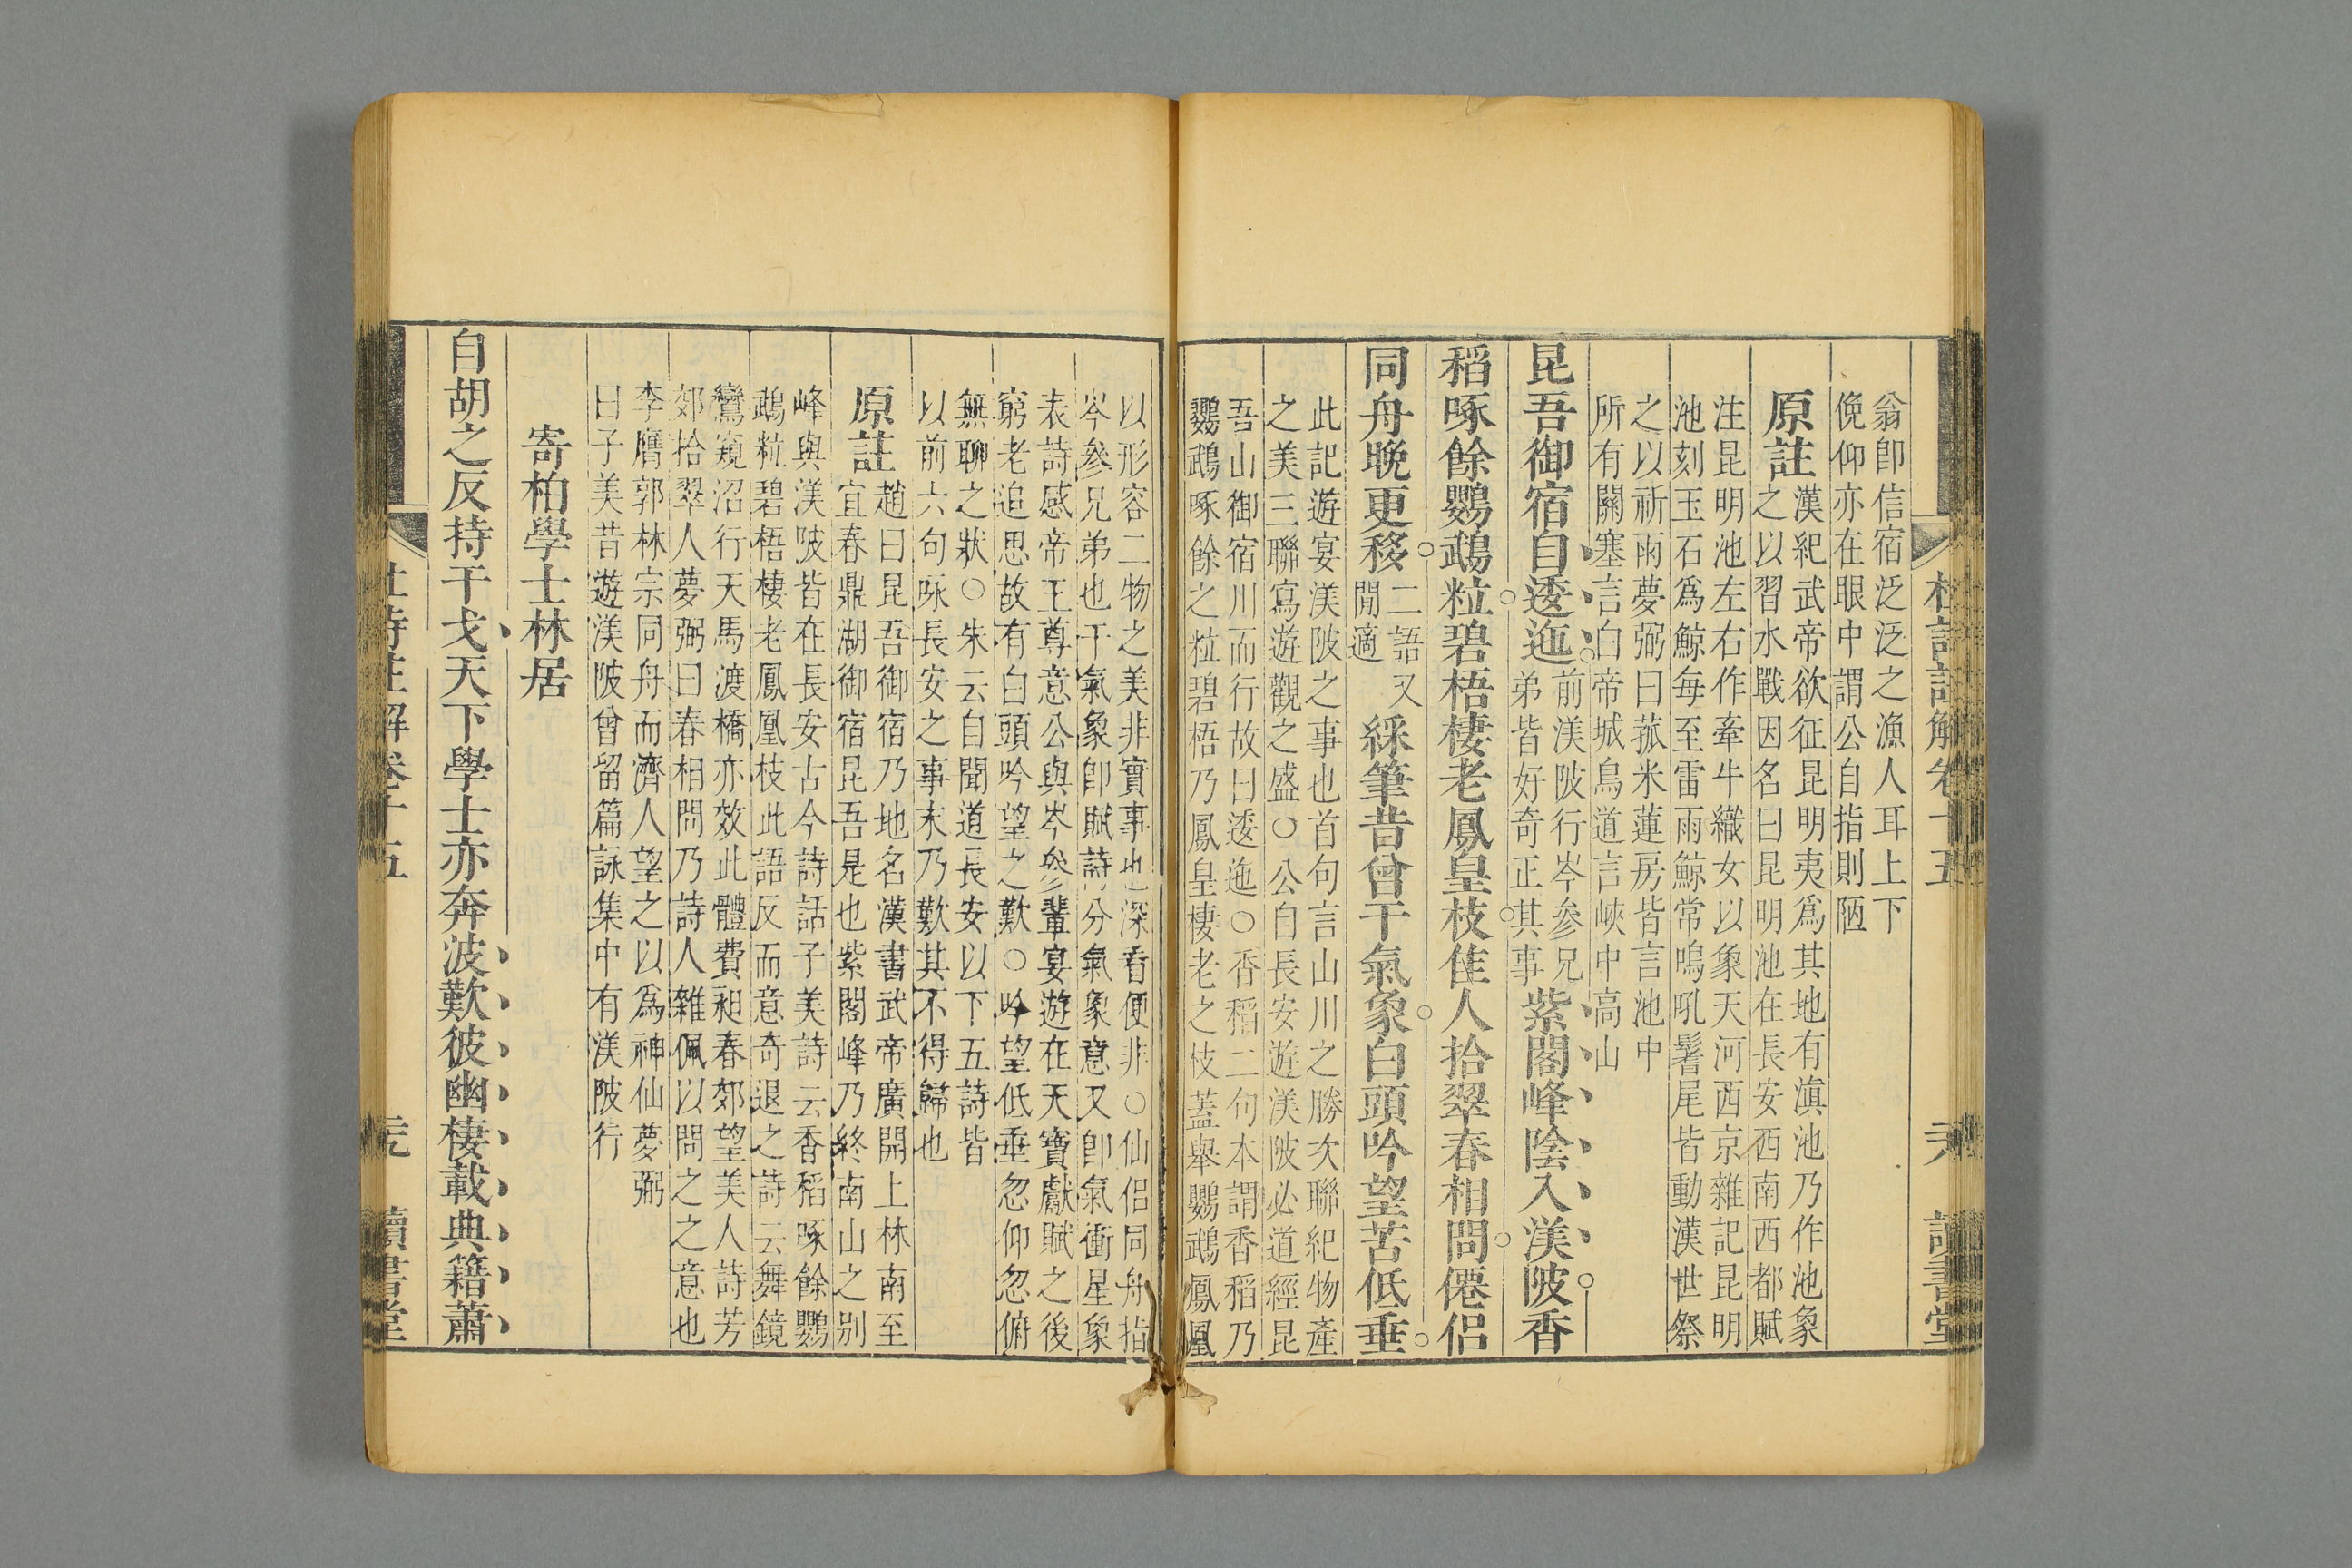 杜詩註解卷十五
讀書堂
翁卽信宿泛泛之漁人耳上下
俛仰亦在眼中謂公自指則陋
原註
漢紀武帝欲征昆明夷爲其地有滇池乃作池象
之以習水戰因名曰昆明池在長安西南西都賦
注昆明池左右作牽牛織女以象天河西京雜記昆明
池刻玉石爲鯨每至雷雨鯨常鳴吼鬐尾皆動漢世祭
之以祈雨夢弼曰菰米蓮房皆言池中
所有關塞言白帝城鳥道言峽中高山
昆吾御宿自逶迤
前渼陂行岑參兄
弟皆好奇正其事
紫閣峰陰入渼陂香
稻啄餘鸚鵡粒碧梧棲老鳳皇枝佳人拾翠春相問僊侶
同舟晚更移
二語又
閒適
綵筆昔曾干氣象白頭吟望苦低垂
此記遊宴渼陂之事也首句言山川之勝次聯紀物產
之美三聯寫遊觀之盛○公自長安遊渼陂必道經昆
吾山御宿川而行故曰逶迤○香稻二句本謂香稻乃
鸚鵡啄餘之粒碧梧乃鳳皇棲老之枝蓋舉鸚鵡鳳凰
以形容二物之美非實事也深看便非○仙侶同舟指
岑參兄弟也干氣象卽賦詩分氣象意又卽氣衝星象
表詩感帝王尊意公與岑參輩宴遊在天寶獻賦之後
窮老追思故有白頭吟望之歎○吟望低垂忽仰忽俯
無聊之狀○朱云自聞道長安以下五詩皆
以前六句咏長安之事末乃歎其不得歸也
原註
趙曰昆吾御宿乃地名漢書武帝廣開上林南至
宜春鼎湖御宿昆吾是也紫閣峰乃終南山之別
峰與渼陂皆在長安古今詩話子美詩云香稻啄餘鸚
鵡粒碧梧棲老鳳凰枝此語反而意奇退之詩云舞鏡
鸞窺沼行天馬渡橋亦效此體費昶春郊望美人詩芳
郊拾翠人夢弼曰春相問乃詩人雜佩以問之之意也
李膺郭林宗同舟而濟人望之以爲神仙夢弼
曰子美昔遊渼陂曾留篇詠集中有渼陂行
寄柏學士林居
自胡之反持干戈天下學士亦奔波歎彼幽棲載典籍蕭
杜詩註解卷十五
讀書堂